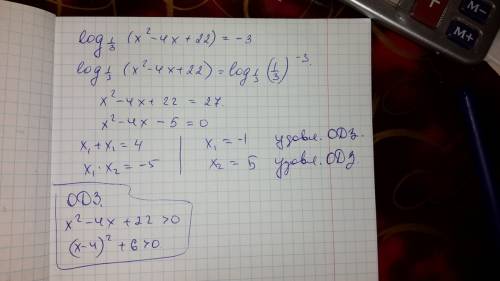 log_{1/3} (x² - 4x + 22) = -3
log_{1/3} (x² - 4x + 22) = log_{1/3} (1/3)^{-3}.
x² - 4x + 22 = 27.
x² - 4x - 5 = 0
x₁ + x₁ = 4
x₁ · x₂ = -5
x₁ = -1 удовл. ОДЗ.
x₂ = 5 удовл. ОДЗ
ОДЗ.
x² - 4x + 22 > 0
(x - 4)² + 6 > 0
M-
M+